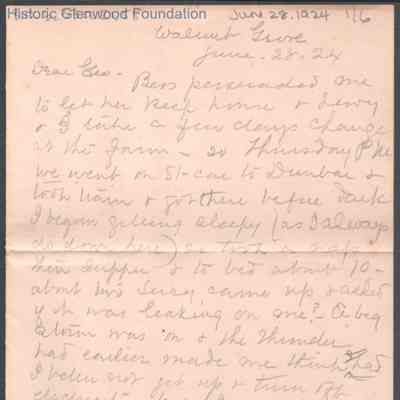 Historic Glenwood Foundation
June 28, 1924 1/6
Walnut Grove
June. 28. 24
Dear Geo - Bess persuaded me
to let her keep house & Henry
& I take a few days change
at the farm - so Thursday P.M.
we went on St-car to Dunbar &
took train & got there before dark
I began getting sleepy (as I always
do down here) so took a nap
then supper & to bed about 10 -
about two Lucy came up & asked
if it was leaking on me? A big
storm was on & the thunder
had earlier made me think had
I better not get up & turn off